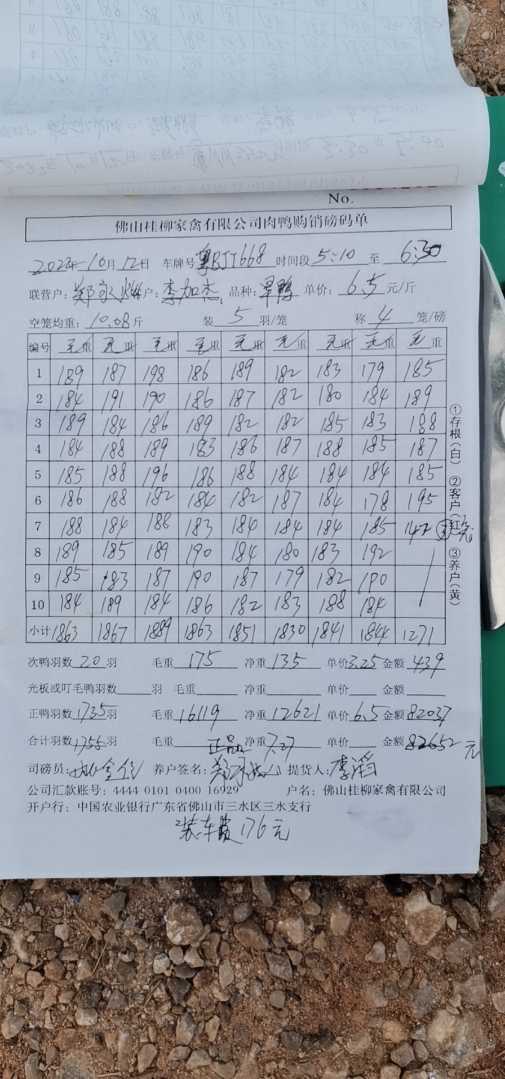 No.
佛山桂柳家禽有限公司肉鸭购销磅码单
2023年10月12日 车牌号 粤BJT668 时间段 5:10 至 6:30
联营户: 郑 户: 李加杰 品种: 单价: 6.5 元/斤
空笼均重: 10.08 斤 装 5 羽/笼 称 4 笼/磅
编号 毛重 毛重 毛重 毛重 毛重 毛重 毛重 毛重 毛重
1 189 187 198 186 189 182 183 179 185
2 184 191 190 186 187 182 180 184 189
3 189 184 186 189 182 182 185 183 188
4 184 188 189 183 186 187 188 185 187
5 185 188 196 186 188 184 184 184 185
6 186 188 182 184 182 187 184 178 195
7 188 184 186 183 184 184 184 185 142
8 189 185 189 190 184 180 183 192
9 185 183 187 190 187 179 182 190
10 184 189 184 186 182 183 188 184
小计 1863 1867 1889 1863 1851 1830 1841 1844 1271
①存根(白) ②客户(红) ③养户(黄)
次鸭羽数 20 羽 毛重 175 净重 135 单价 3.25 金额 439
光板或叮毛鸭羽数 羽 毛重 净重 单价 金额
正鸭羽数 1735 羽 毛重 16119 净重 12621 单价 6.5 金额 82037
合计羽数 1755 羽 毛重 正品 净重 7.27 单价 金额 82652 元
司磅员: 养户签名: 郑 提货人: 李滔
公司汇款账号: 4444 0101 0400 16929 户名: 佛山桂柳家禽有限公司
开户行: 中国农业银行广东省佛山市三水区三水支行
装车费 176 元